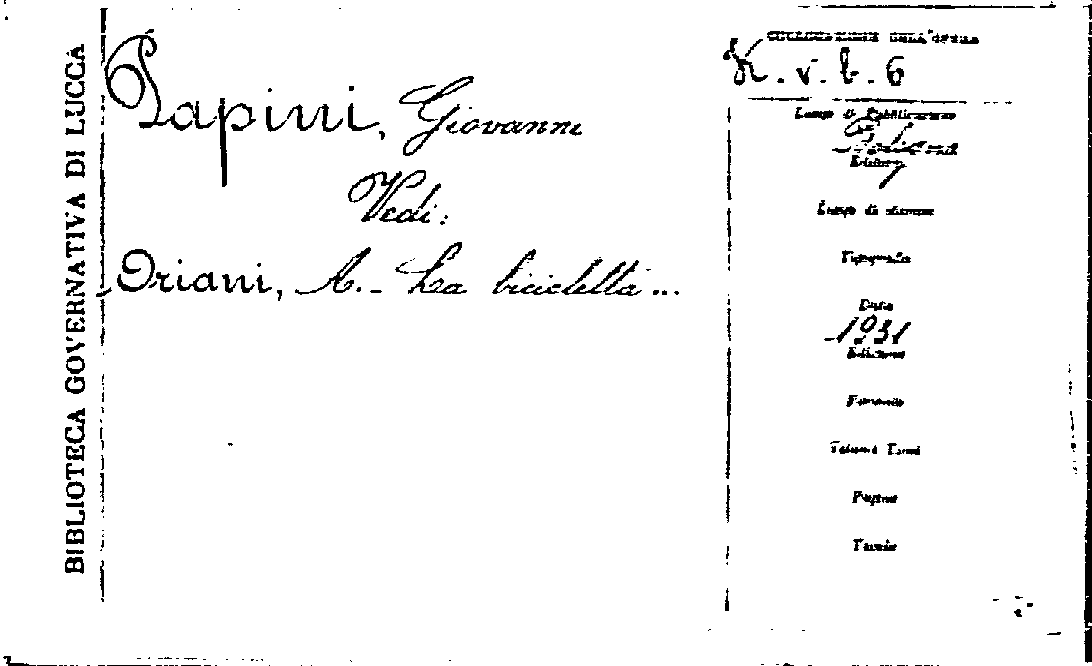 BIBLIOTECA GOVERNATIVA DI LUCCA
Papini, Giovanni
Vedi:
Oriani, A. - La bicicletta...
COLLOCAZIONE DELL'OPERA
K. v. b. 6
Luogo di Pubblicazione
Editore
Luogo di stampa
Tipografia
Data
1931
Edizione
Formato
Volumi Tomi
Pagine
Tavole